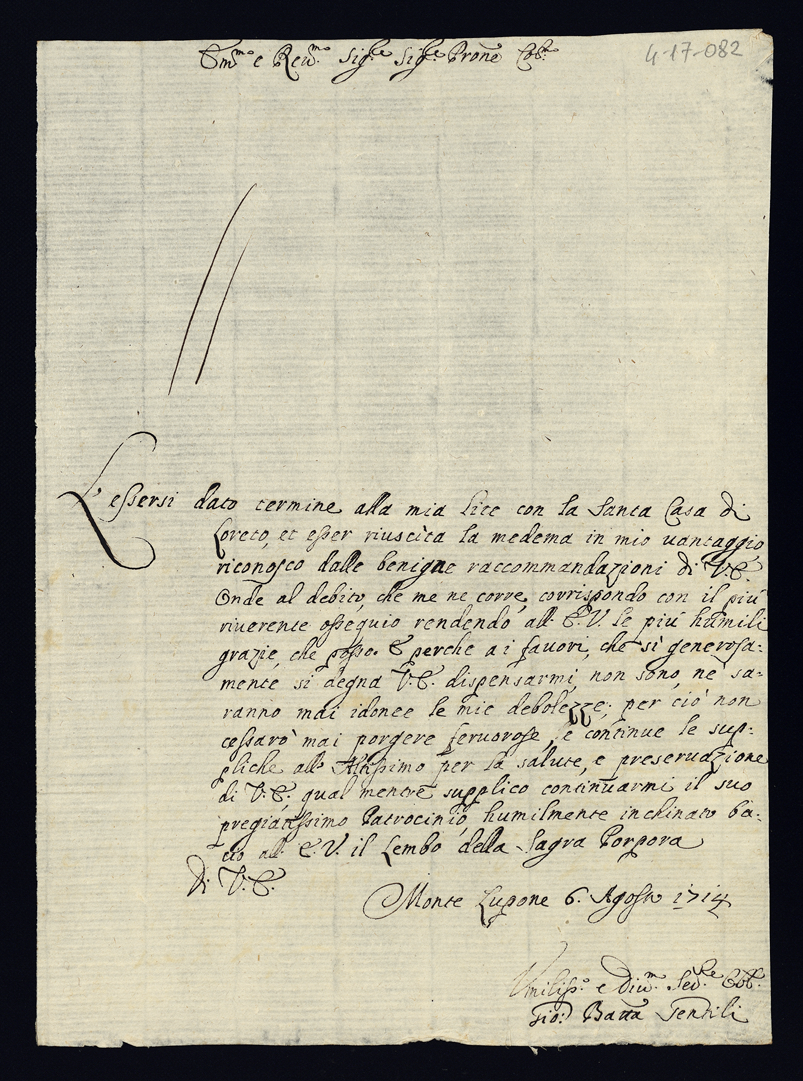 Em.mo e Reu.mo Sig.re Sig.re Prone Col.mo
4-17-082
L'essersi dato termine alla mia Lite con la Santa Casa di
Loreto, et esser riuscita la medema in mio uantaggio
riconosco dalle benigne raccommandazioni di V.E.
Onde al debito, che me ne corre, corrispondo con il più
riuerente ossequio rendendo all' E.V. le più humili
grazie, che posso. E perche a i fauori, che sì generosa:
mente si degna V.E. dispensarmi, non sono, ne sa:
ranno mai idonee le mie debolezze; per ciò non
cessarò mai porgere feruorose, e continue le sup:
pliche all' Altissimo per la salute, e preseruazione
di V.E. qual mentre supplico continuarmi il suo
pregiatissimo Patrocinio, humilmente inchinato ba:
cio all' E.V. il Lembo della Sagra Porpora
Di V.E.
Monte Lupone 6. Agosto 1714
Vmiliss.o e Diu.mo Ser.re Obl.
Gio: Batta Gentili